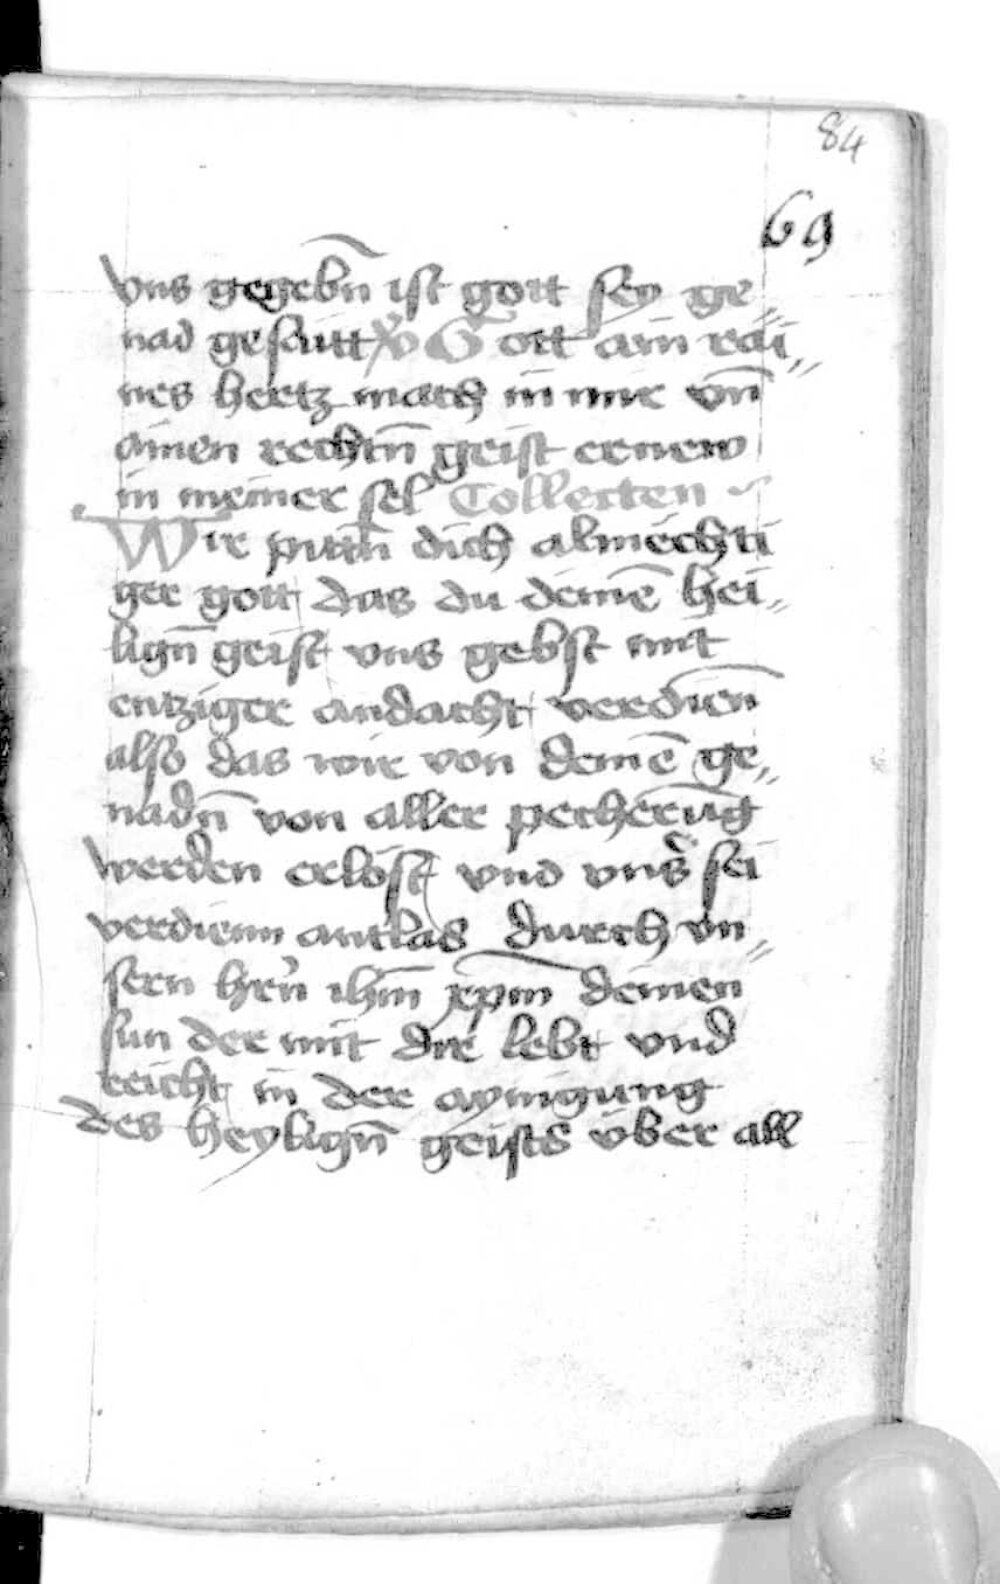 84
69
vns gegebn̄ ist gott sey ge„
nad gesaitt ℣ Gott ain rai„
nes hertz mach in mir vn̄
ainen rechtn̄ geist ernew
in meiner sel Collecten
Wir pittn̄ dich almechti
ger gott das du deinē hei„
lign̄ geist vns gebst mit
entziger andacht verdien̄
also das wir von deinē ge„
nadn̄ von aller pecherūg
werden erlöst vnd vnsʼ sei
verdienn antlas durch vn„
sern hrʼn ihm̄ xpm̄ deinen
sun der mit dir lebt vnd
reicht in der aynigung
des heylign̄ geists über all